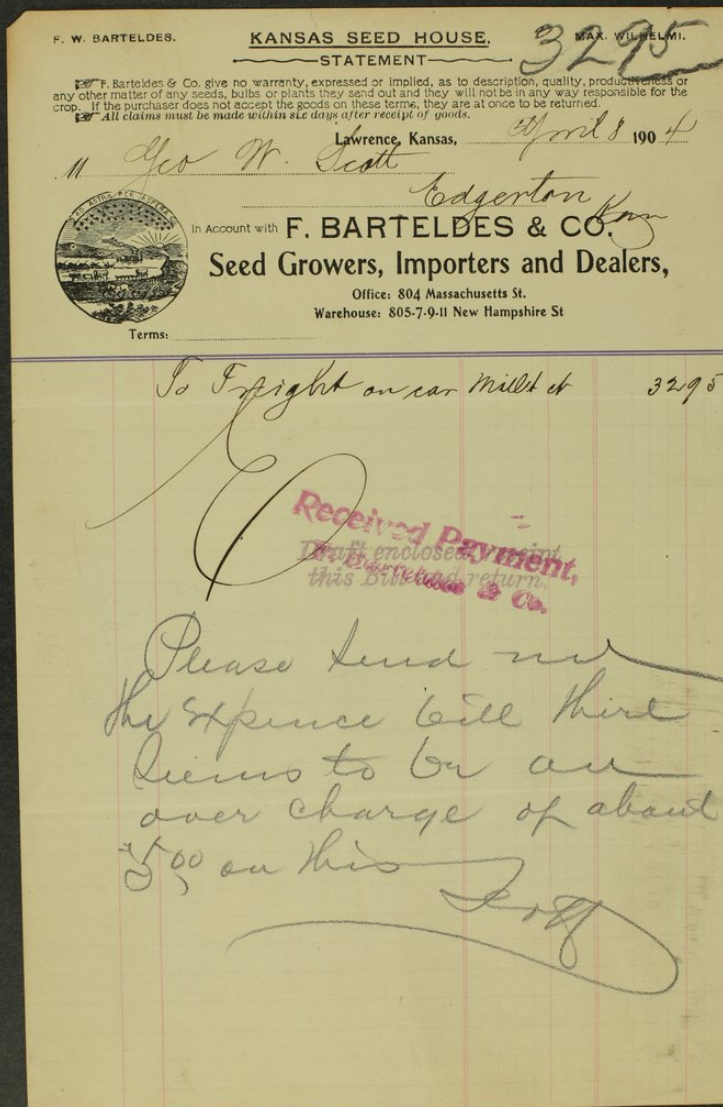 F. W. BARTELDES. KANSAS SEED HOUSE. MAX. WILHELMI.
3295
STATEMENT
F. Barteldes & Co. give no warranty, expressed or implied, as to description, quality, productiveness or
any other matter of any seeds, bulbs or plants they send out and they will not be in any way responsible for the
crop. If the purchaser does not accept the goods on these terms, they are at once to be returned.
All claims must be made within six days after receipt of goods.
Lawrence, Kansas, April 8 1904
M Geo W. Scott
Edgerton Kan
AD ASTRA PER ASPERA
In Account with F. BARTELDES & CO.
Seed Growers, Importers and Dealers,
Office: 804 Massachusetts St.
Warehouse: 805-7-9-11 New Hampshire St
Terms:
To Freight on car Millet 3295
Received Payment,
Draft enclosed
this Bill and return.
& Co.
Please send me
the Expence bill thire
seems to be an
over charge of about
$5.00 on this
Scott